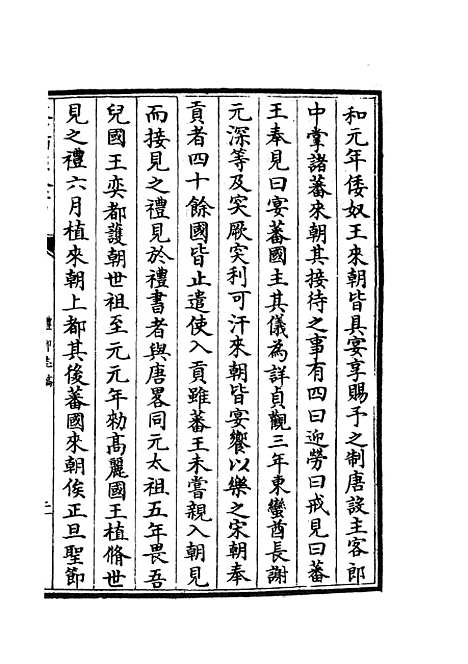 和元年倭奴王來朝皆具宴享賜予之制唐設主客郎
中掌諸蕃來朝其接待之事有四曰迎勞曰戒見曰蕃
王奉見曰宴蕃國主其儀為詳貞觀三年東蠻酋長謝
元深等及突厥突利可汗來朝皆宴饗以樂之宋朝奉
貢者四十餘國皆止遣使入貢雖蕃王未嘗親入朝見
而接見之禮見於禮書者與唐畧同元太祖五年畏吾
兒國王奕都護朝世祖至元元年勑髙麗國王植脩世
見之禮六月植來朝上都其後蕃國來朝俟正旦聖節